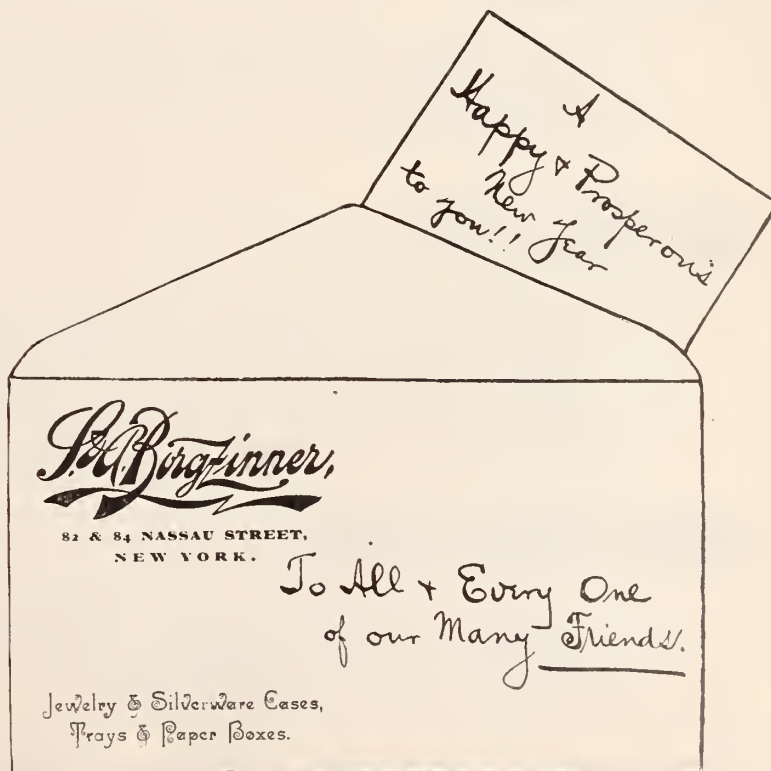 A
Happy & Prosperous
New Year
to you!!
S. & A. Borgzinner,
82 & 84 NASSAU STREET,
NEW YORK.
To All & Every One
of our Many Friends.
Jewelry & Silverware Cases,
Trays & Paper Boxes.